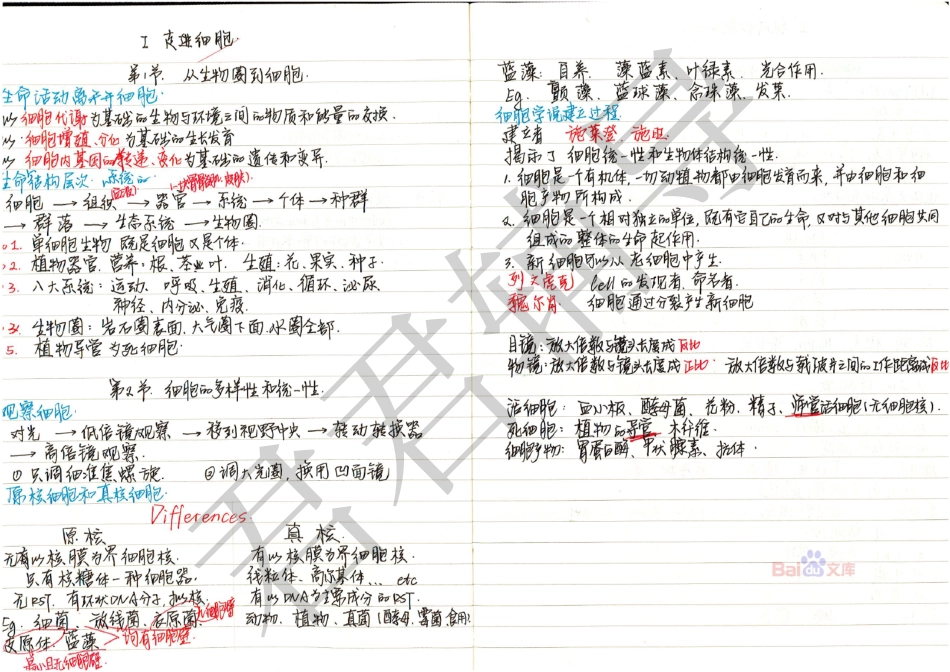 I 走进细胞
第1节 从生物圈到细胞
生命活动离不开细胞
以细胞代谢为基础的生物与环境之间的物质和能量的交换
以细胞增殖、分化为基础的生长发育
以细胞内基因的传递、变化为基础的遗传和变异
生命结构层次 系统的
细胞 → 组织 → 器官 → 系统 → 个体 → 种群
→ 群落 → 生态系统 → 生物圈
1. 单细胞生物 既是细胞又是个体.
2. 植物器官. 营养:根、茎、叶. 生殖:花、果实、种子.
3. 八大系统:运动、呼吸、生殖、消化、循环、泌尿
神经、内分泌、免疫.
生物圈:岩石圈表面,大气圈下面,水圈全部.
5. 植物导管为死细胞
第2节 细胞的多样性和统一性.
观察细胞
对光 → 低倍镜观察 → 移到视野中央 → 转动转换器
→ 高倍镜观察.
①只调细准焦螺旋. ②调大光圈,换用凹面镜
原核细胞和真核细胞
Differences
原核 真核
无有以核膜为界细胞核. 有以核膜为界细胞核
只有核糖体一种细胞器. 线粒体、高尔基体… etc
无RST,有环状DNA分子,拟核. 有以DNA为主要成分的RST.
Eg. 细菌、放线菌、衣原菌 无细胞壁 动物、植物、真菌(酵母、霉菌、食用)
支原体、蓝藻 均有细胞壁
最小且无细胞壁
蓝藻:自养. 藻蓝素、叶绿素. 光合作用.
Eg. 颤藻、蓝球藻、念珠藻、发菜.
细胞学说建立过程
建立者 施莱登、施旺
揭示了细胞统一性和生物体结构统一性.
1. 细胞是一个有机体,一切动植物都由细胞发育而来,并由细胞和细
胞产物所构成.
2. 细胞是一个相对独立的单位,既有它自己的生命,又对与其他细胞共同
组成的整体的生命起作用.
3. 新细胞可以从老细胞中产生.
列文虎克 Cell的发现者、命名者.
魏尔肖. 细胞通过分裂产生新细胞
目镜:放大倍数与镜头长度成反比
物镜:放大倍数与镜头长度成正比 放大倍数与载玻片之间的工作距离成反比
活细胞:血小板、酵母菌、花粉、精子、筛管活细胞(无细胞核).
死细胞:植物的导管、木纤维.
细胞产物:胃蛋白酶、甲状腺素、抗体.
君君辅导
Baidu文库